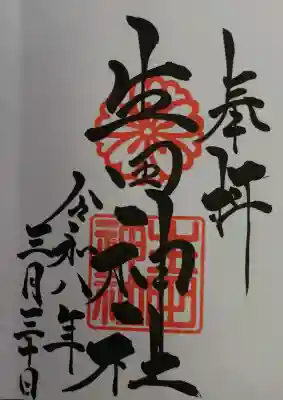 奉拝
生田神社
令和八年
三月三十日